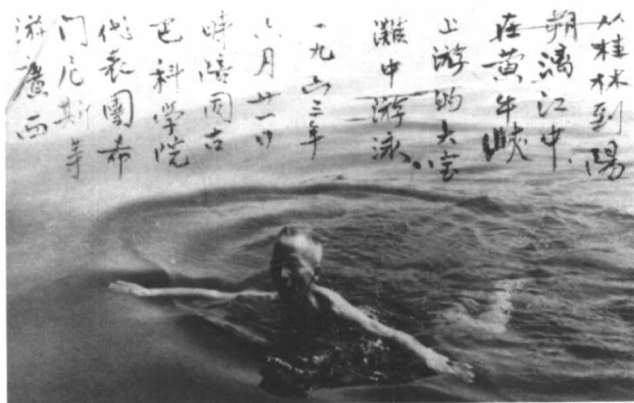 从桂林到陽
朔漓江中
在黄牛峽
上游的大宝
灘中游泳
一九六三年
六月廿一日
時陪同古
巴科学院
代表團希
门尼斯等
游廣西